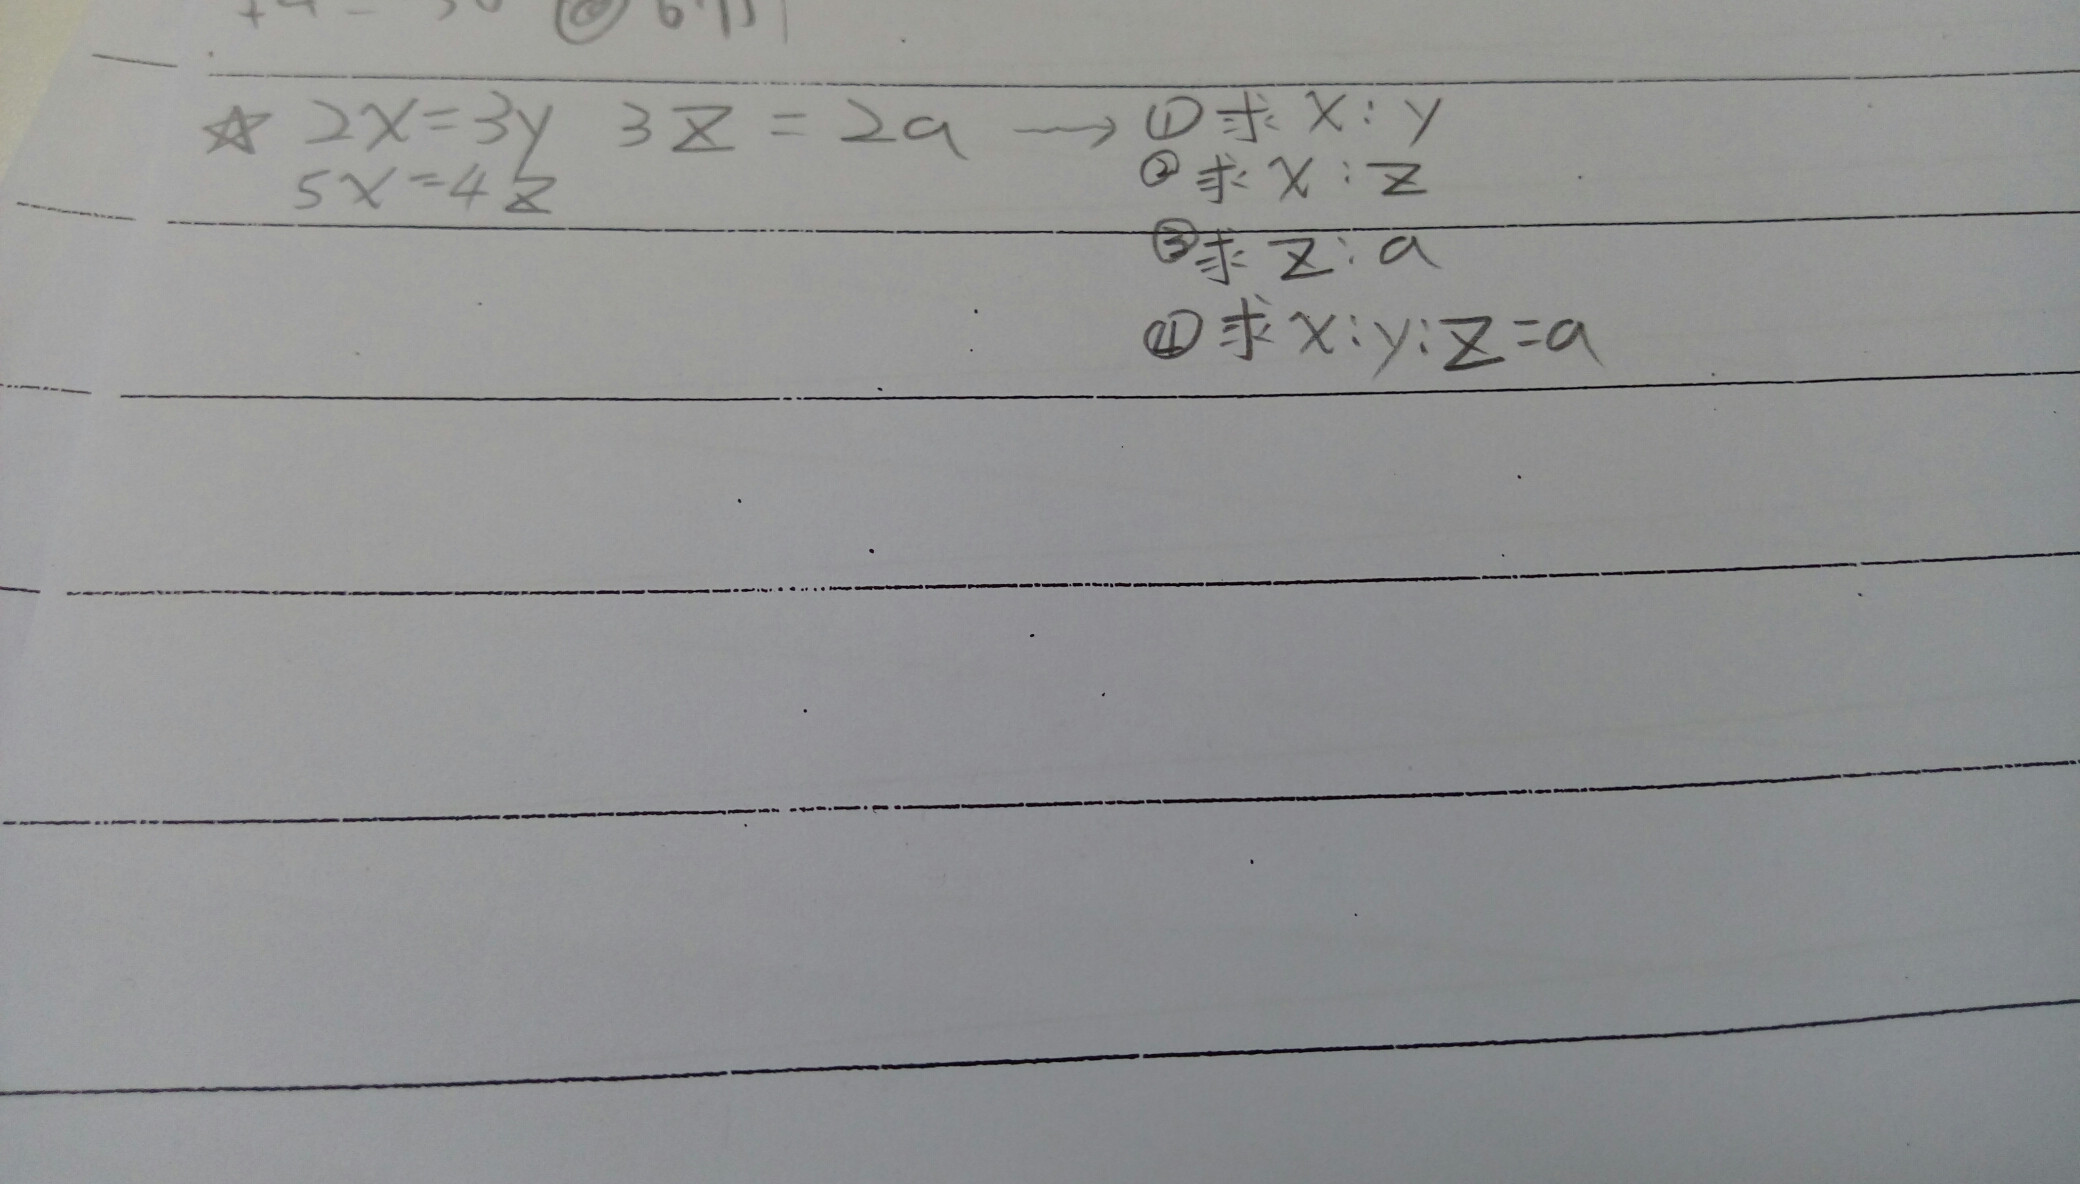 ☆ 2x=3y 3z=2a → ①求 x:y
5x=4z ②求 x:z
③求 z:a
④求 x:y:z=a